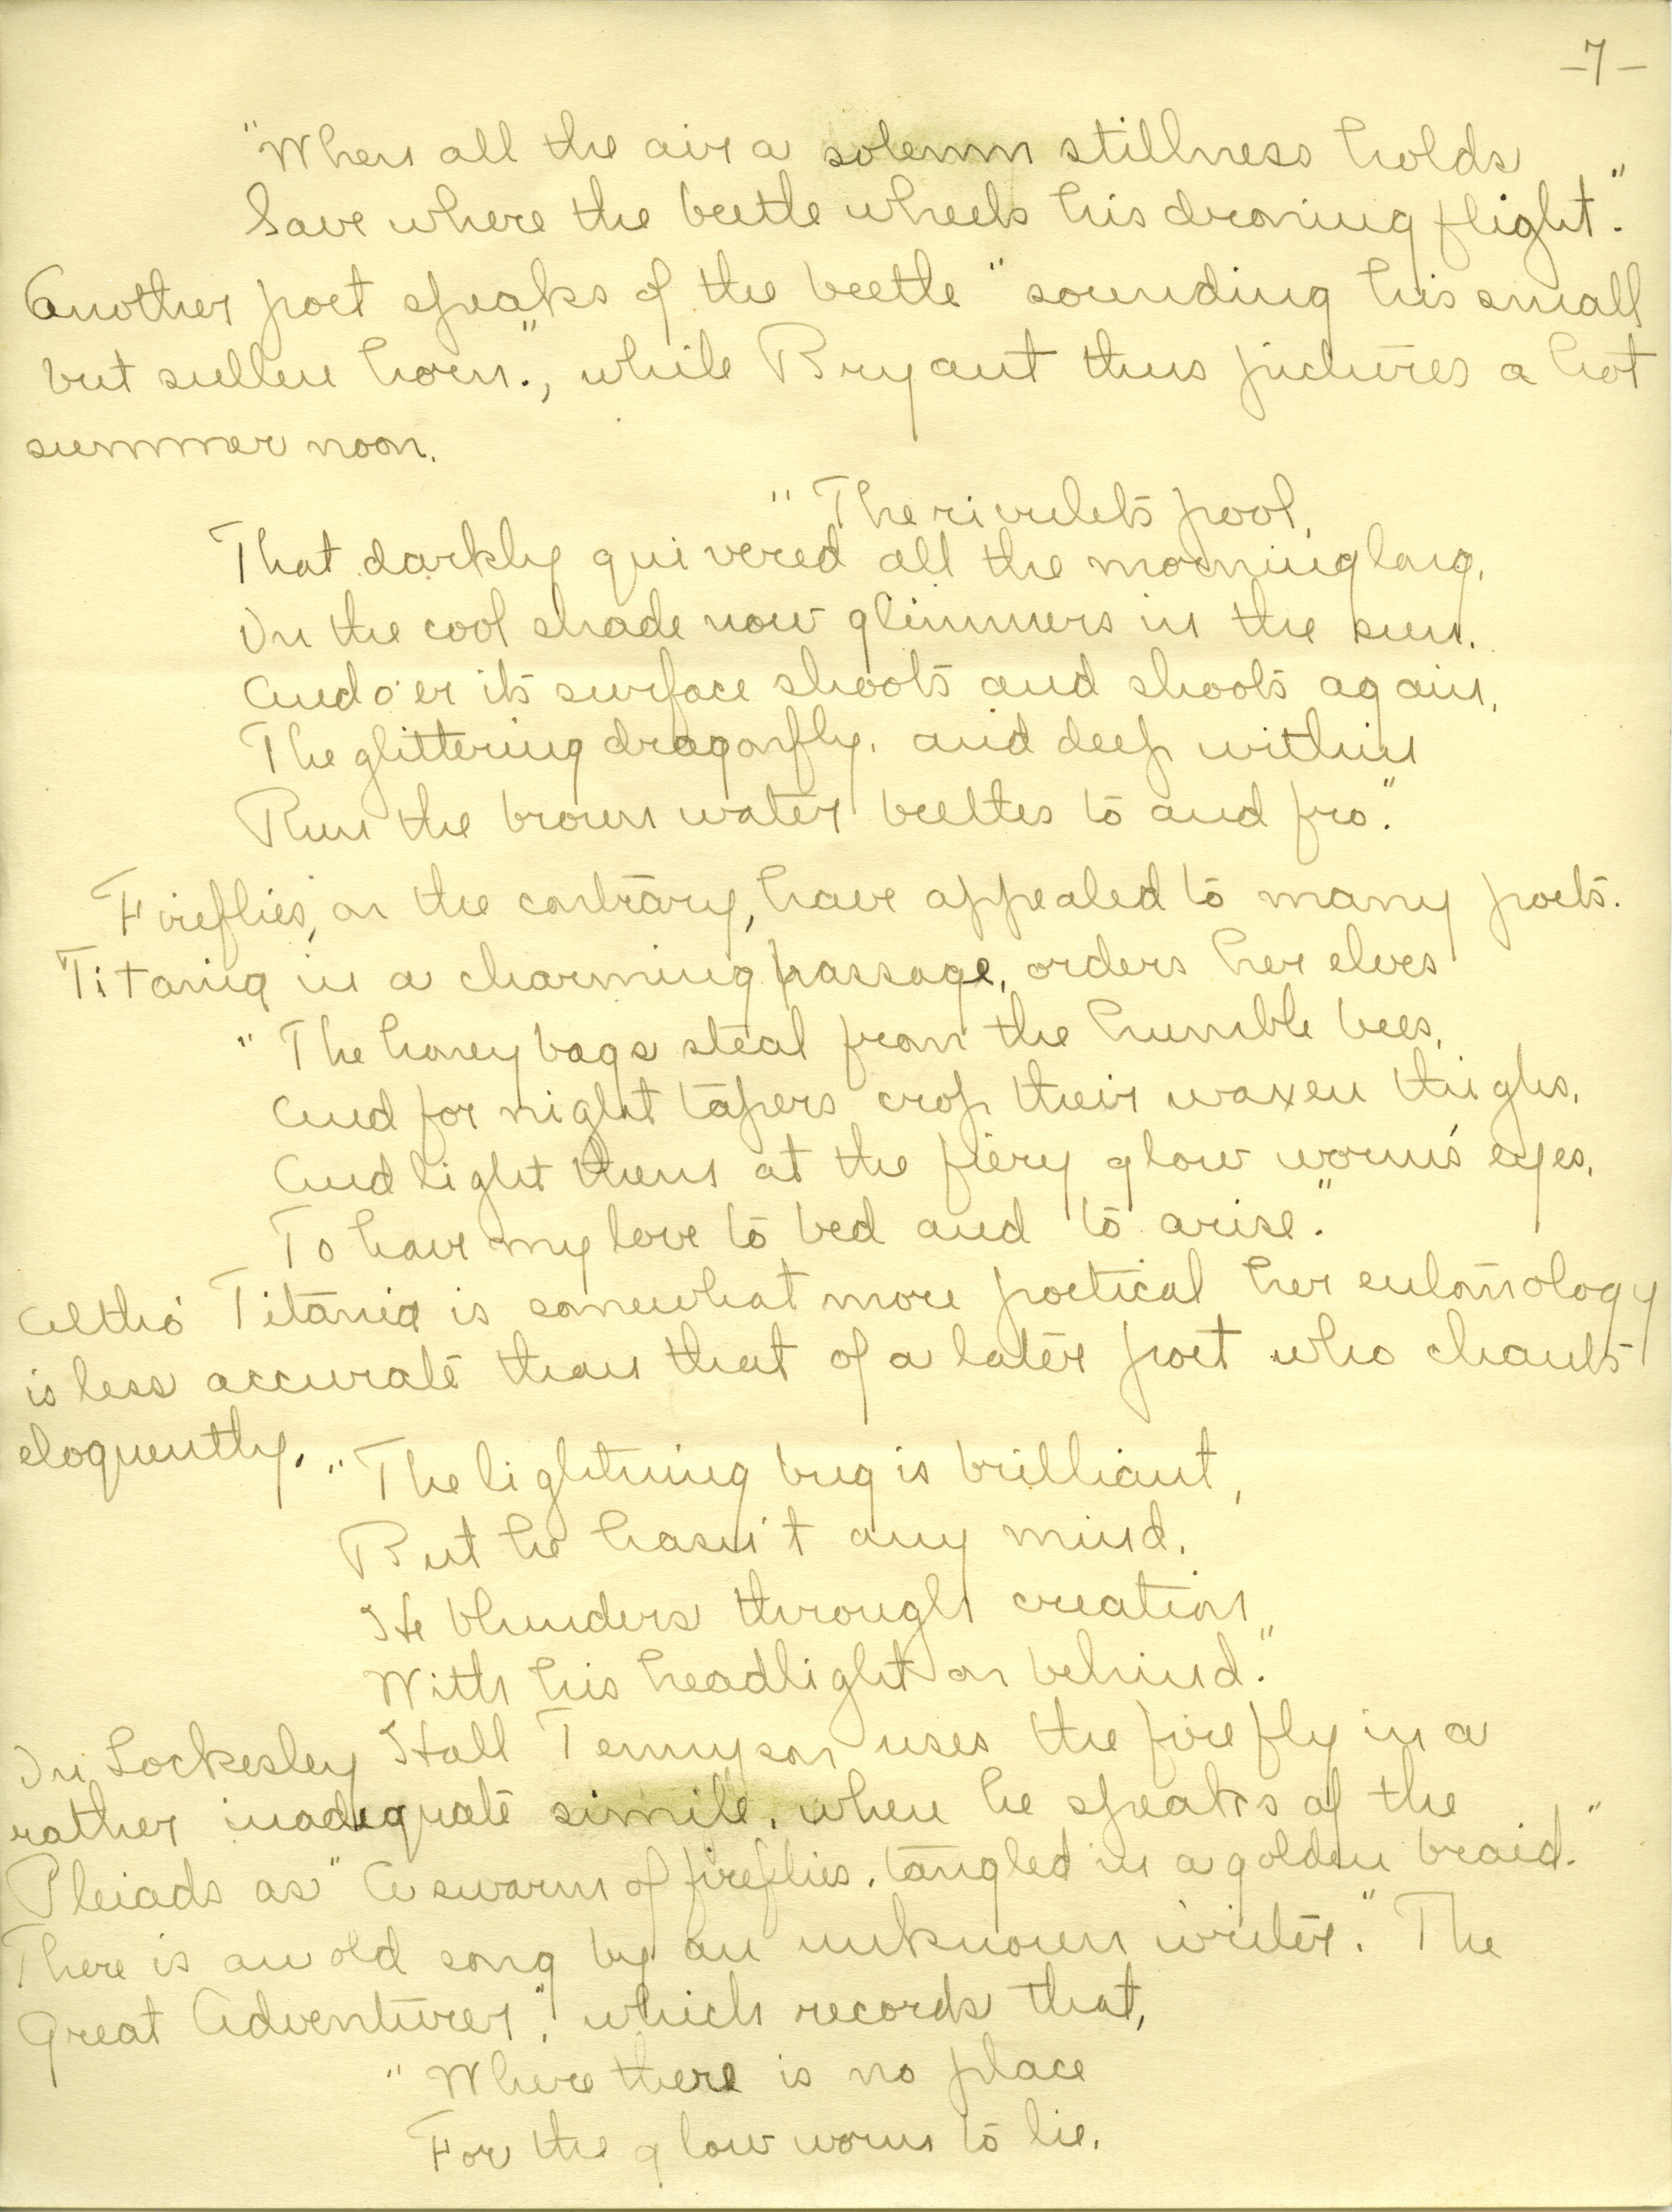 -7-
"When all the air a solemn stillness holds
Save where the beetle wheels his droning flight."
Another poet speaks of the beetle "sounding his small
but sullen horn.", while Bryant thus pictures a hot
summer noon.
"The rivulet's pool,
That darkly quivered all the morning long,
In the cool shade now glimmers in the sun.
And o'er its surface shoots and shoots again,
The glittering dragonfly, and deep within
Run the brown water beeltes to and fro."
Fireflies, on the contrary, have appealed to many poets.
Titania in a charming passage, orders her elves
"The honey bags steal from the humble bees,
And for night tapers crop their waxen thighs,
And light them at the fiery glow worm's eyes,
To have my love to bed and to arise."
Altho' Titania is somewhat more poetical her entomology
is less accurate than that of a later poet who chants
eloquently. "The lightning bug is brilliant,
But he hasn't any mind.
He blunders through creation
With his headlight on behind."
In Lockesley Hall Tennyson uses the fire fly in a
rather inadequate simile, when he speaks of the
Pleiads as "A swarm of fireflies, tangled in a golden braid."
There is an old song by an unknown writer. "The
Great Adventurer", which records that,
"Where there is no place
For the glow worm to lie.